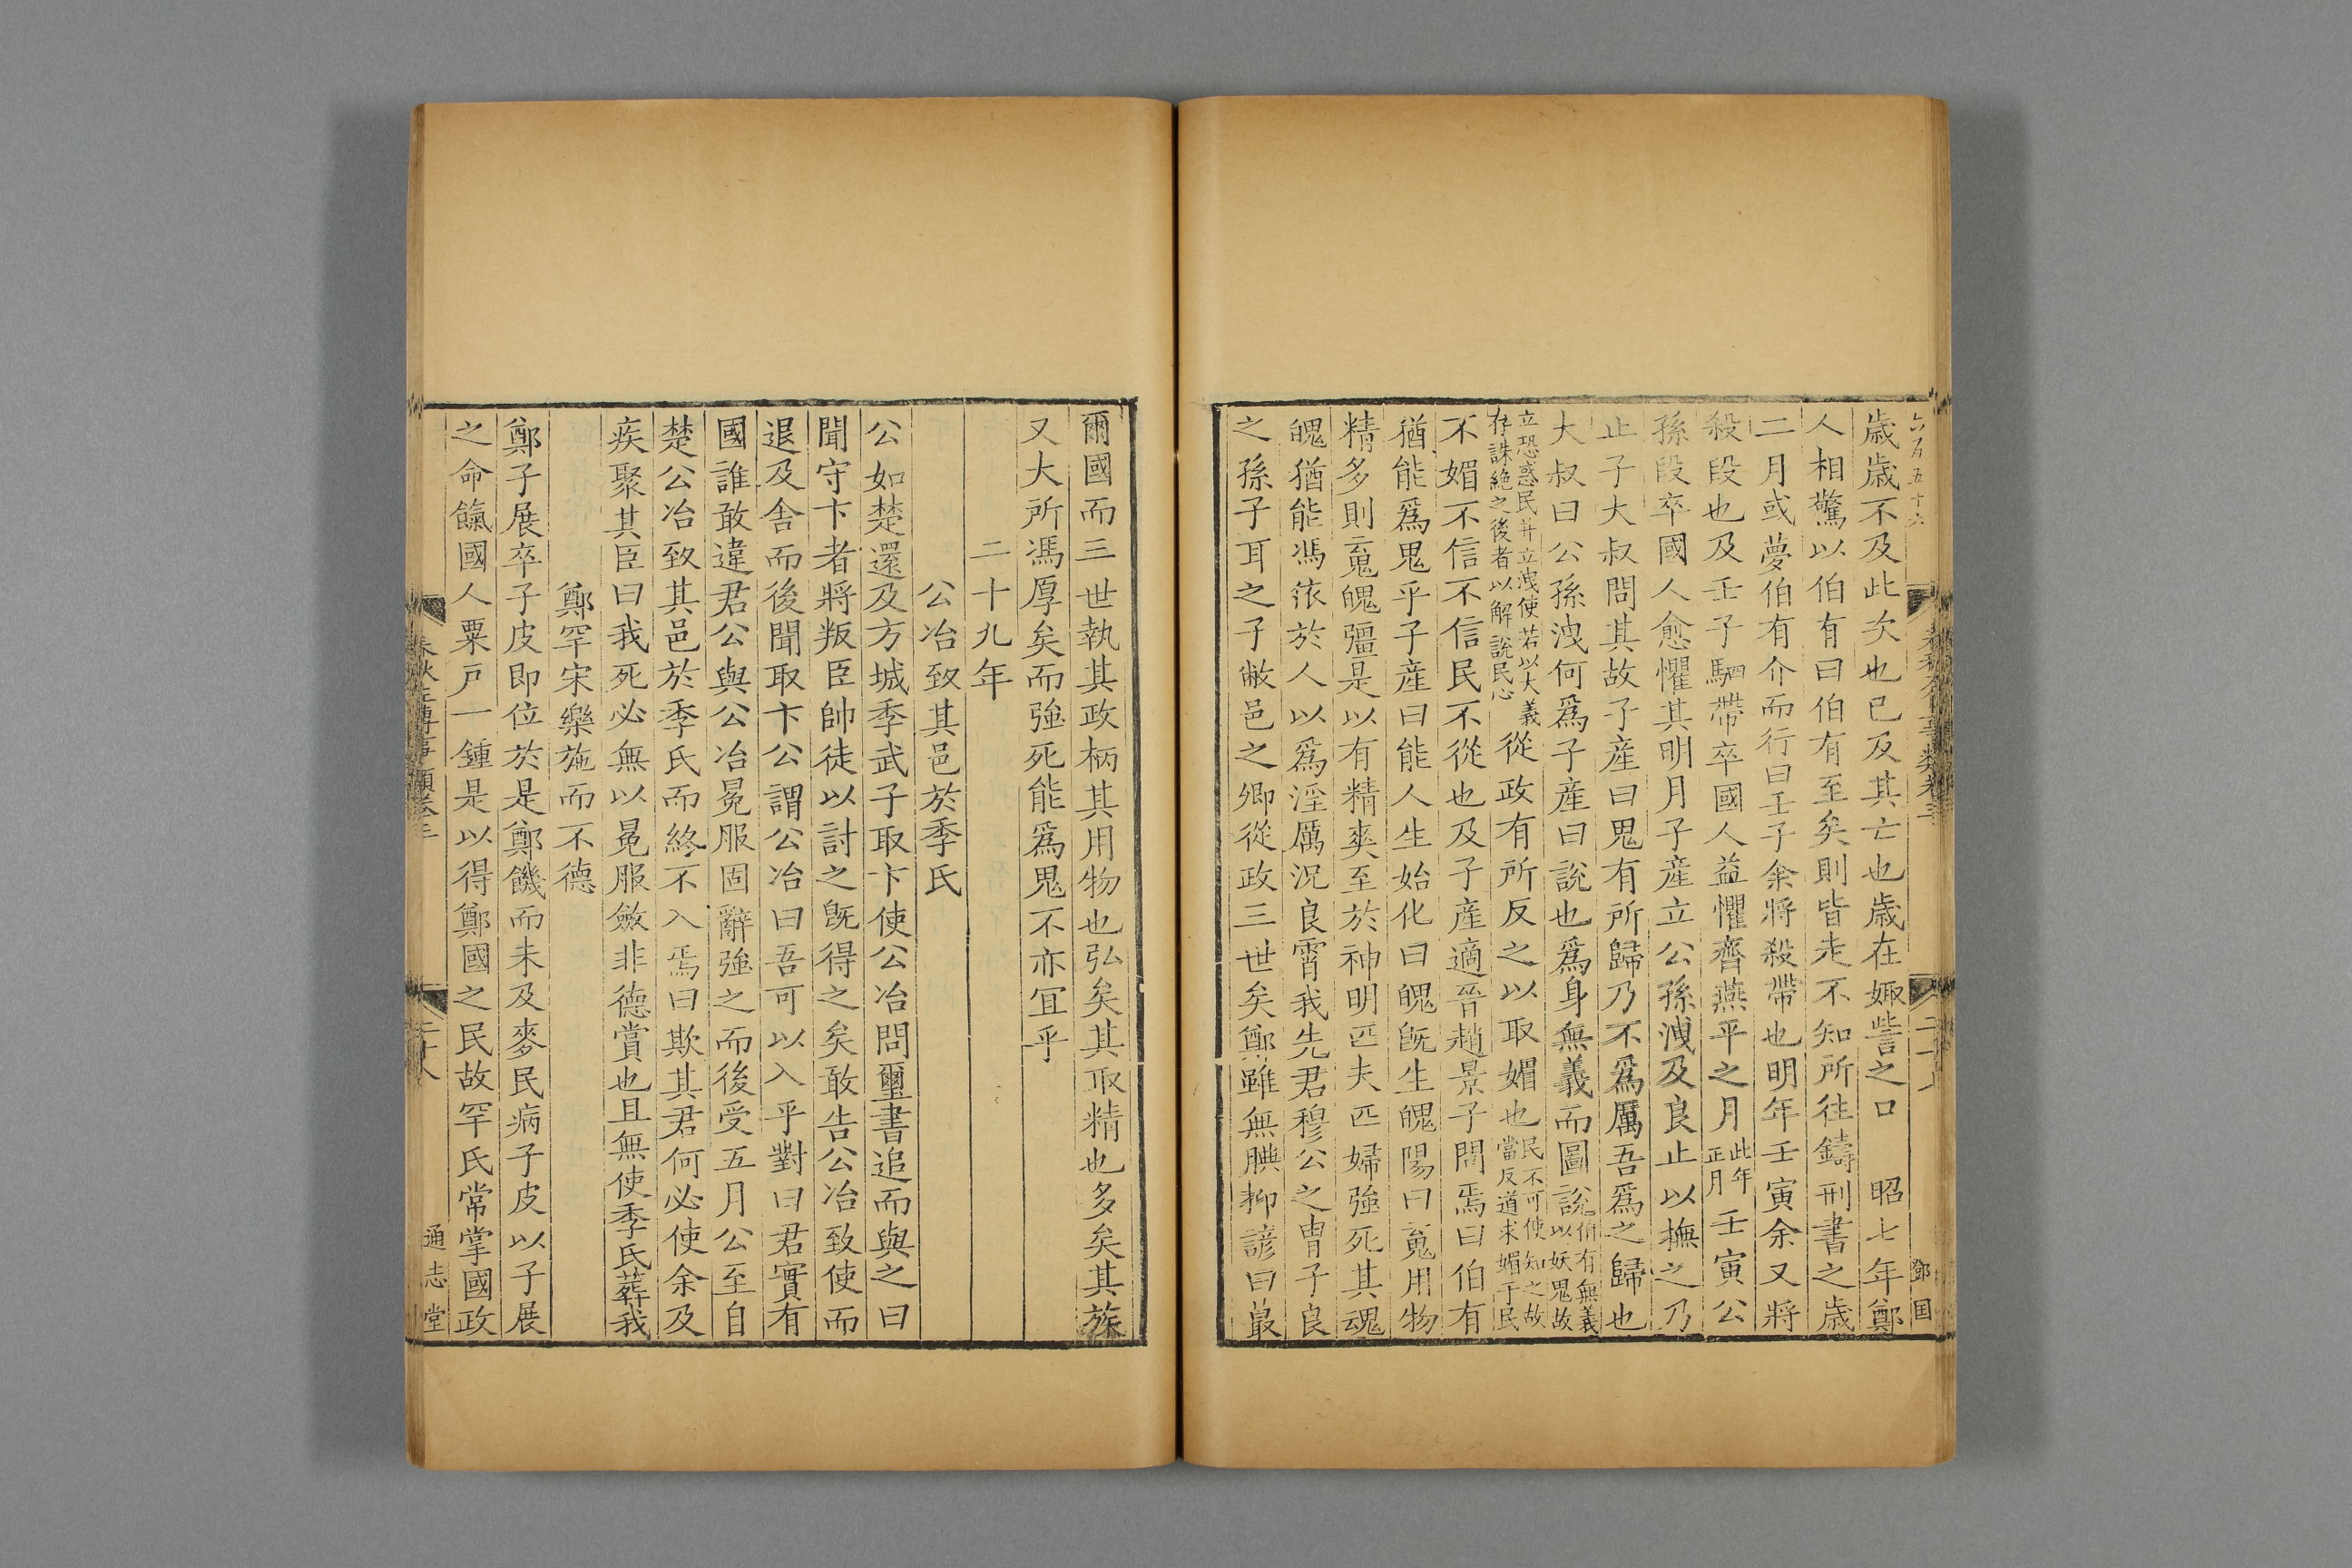 六百五十六
鄧国
歲歲不及此次也已及其亡也歲在娵訾之口　昭七年鄭
人相驚以伯有曰伯有至矣則皆走不知所往鑄刑書之歲
二月或夢伯有介而行曰壬子余將殺帶也明年壬寅余又將
殺段也及壬子駟帶卒國人益懼齊燕平之月此年正月壬寅公
孫段卒國人愈懼其明月子産立公孫洩及良止以撫之乃
止子大叔問其故子産曰鬼有所歸乃不爲厲吾爲之歸也
大叔曰公孫洩何爲子産曰說也爲身無義而圖說伯有無義以妖鬼故
立恐惑民并立洩使若以大義存誅絶之後者以解說民心從政有所反之以取媚也民不可使知之故當反道求媚于民
不媚不信不信民不從也及子產適晉趙景子問焉曰伯有
猶能爲鬼乎子産曰能人生始化曰魄旣生魄陽曰䰟用物
精多則䰟魄彊是以有精爽至於神明匹夫匹婦強死其魂
魄猶能馮依於人以爲淫厲况良霄我先君穆公之胄子良
之孫子耳之子敝邑之卿從政三世矣鄭雖無腆抑諺曰蕞
爾國而三世執其政柄其用物也弘矣其取精也多矣其族
又大所馮厚矣而強死能爲鬼不亦宜乎
二十九年
公冶致其邑於季氏
公如楚還及方城季武子取卞使公冶問璽書追而與之曰
聞守卞者將叛臣帥徒以討之旣得之矣敢告公冶致使而
退及舍而後聞取卞公謂公冶曰吾可以入乎對曰君實有
國誰敢違君公與公冶冕服固辭強之而後受五月公至自
楚公冶致其邑於季氏而終不入焉曰欺其君何必使余及
疾聚其臣曰我死必無以冕服斂非德賞也且無使季氏葬我
鄭罕宋樂施而不德
鄭子展卒子皮即位於是鄭饑而未及麥民病子皮以子展
之命餼國人粟戸一鍾是以得鄭國之民故罕氏常掌國政
春秋左傳事類卷三
二十八
通志堂